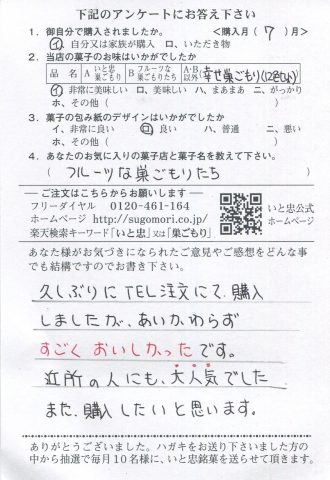 下記のアンケートにお答え下さい
1．御自分で購入されましたか。 ＜購入月（7）月＞
イ、自分又は家族が購入 ロ、いただき物
2．当店の菓子のお味はいかがでしたか
品 名 A いと忠 巣ごもり B フルーツな 巣ごもりたち A･B 以外 幸せ巣ごもり(12色セット)
イ、非常に美味しい ロ、美味しい ハ、まあまあ ニ、がっかり
ホ、その他（ ）
3．菓子の包み紙のデザインはいかがでしたか
イ、非常に良い ロ、良い ハ、普通 ニ、悪い
ホ、その他（ ）
4．あなたのお気に入りの菓子店と菓子名を教えて下さい。
（ フルーツな巣ごもりたち ）
―ご注文はこちらからお願いします―
フリーダイヤル 0120-461-164
ホームページ http://sugomori.co.jp/
楽天検索キーワード「いと忠」又は「巣ごもり」
いと忠公式
ホームページ
あなた様がお気づきになられたご意見やご感想をどんな事
でも結構ですのでお書き下さい。
久しぶりにTEL注文にて、購入
しましたが、あいかわらず
すごくおいしかったです。
近所の人にも、大人気でした
また、購入したいと思います。
ありがとうございました。ハガキをお送り下さいました方の
中から抽選で毎月10名様に、いと忠銘菓を送らせて頂きます。